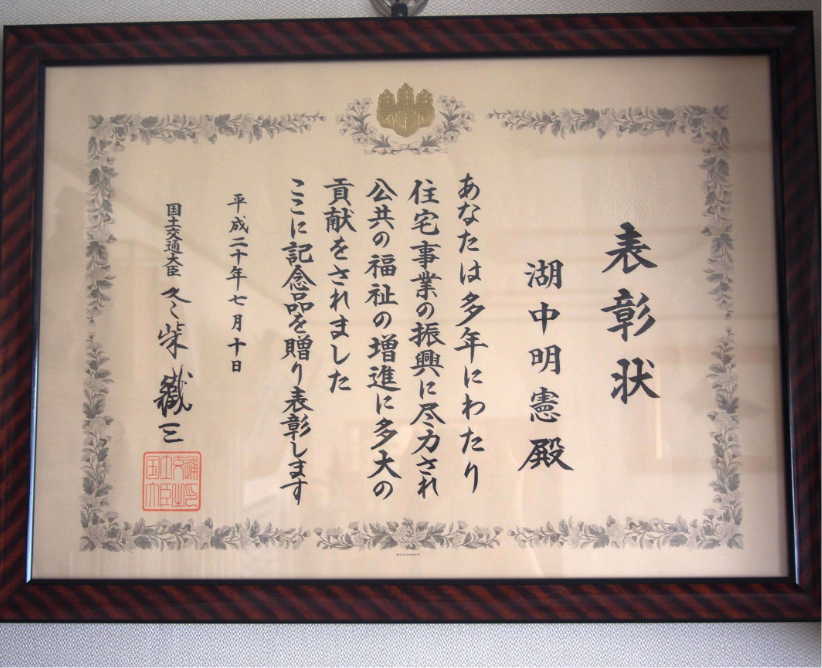 表彰状
湖中明憲殿
あなたは多年にわたり
住宅事業の振興に尽力され
公共の福祉の増進に多大の
貢献をされました
ここに記念品を贈り表彰します
平成二十年七月十日
国土交通大臣 冬柴鐵三
国土交通大臣之印